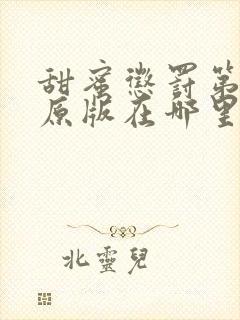 甜蜜懲罰第
原版在哪里
北靈兒